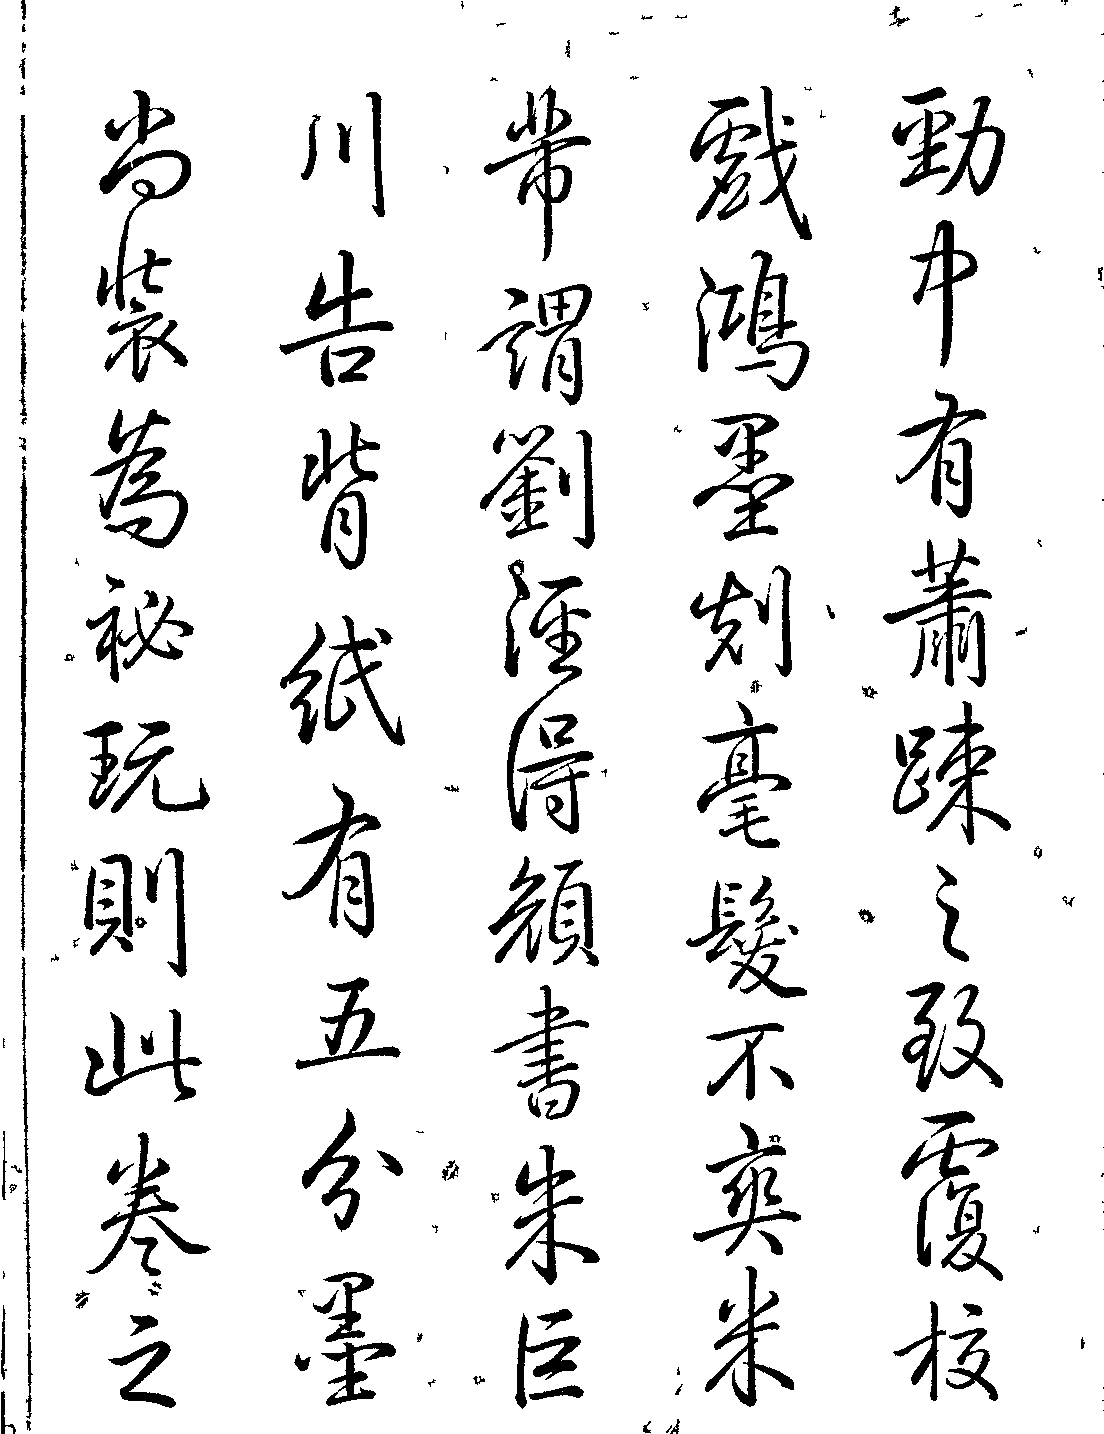 勁中有蕭踈之致覆校
戲鴻墨刻毫髮不爽米
芾謂劉涇得顏書朱巨
川告背紙有五分墨
尚裝為祕玩則此卷之